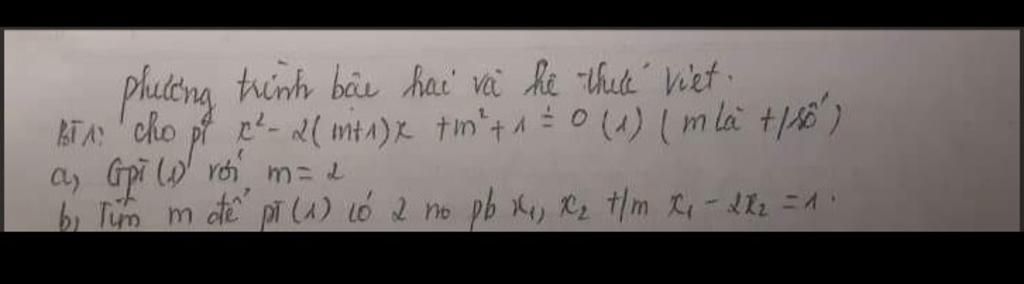 phương trình bậc hai và hệ thức viet.
BT1: cho pt x² - 2(m+1)x + m² + 1 = 0 (1) (m là t/số)
a, Gpt (1) với m = 2
b, Tìm m để pt (1) có 2 no pb x₁, x₂ t/m x₁ - 2x₂ = 1.